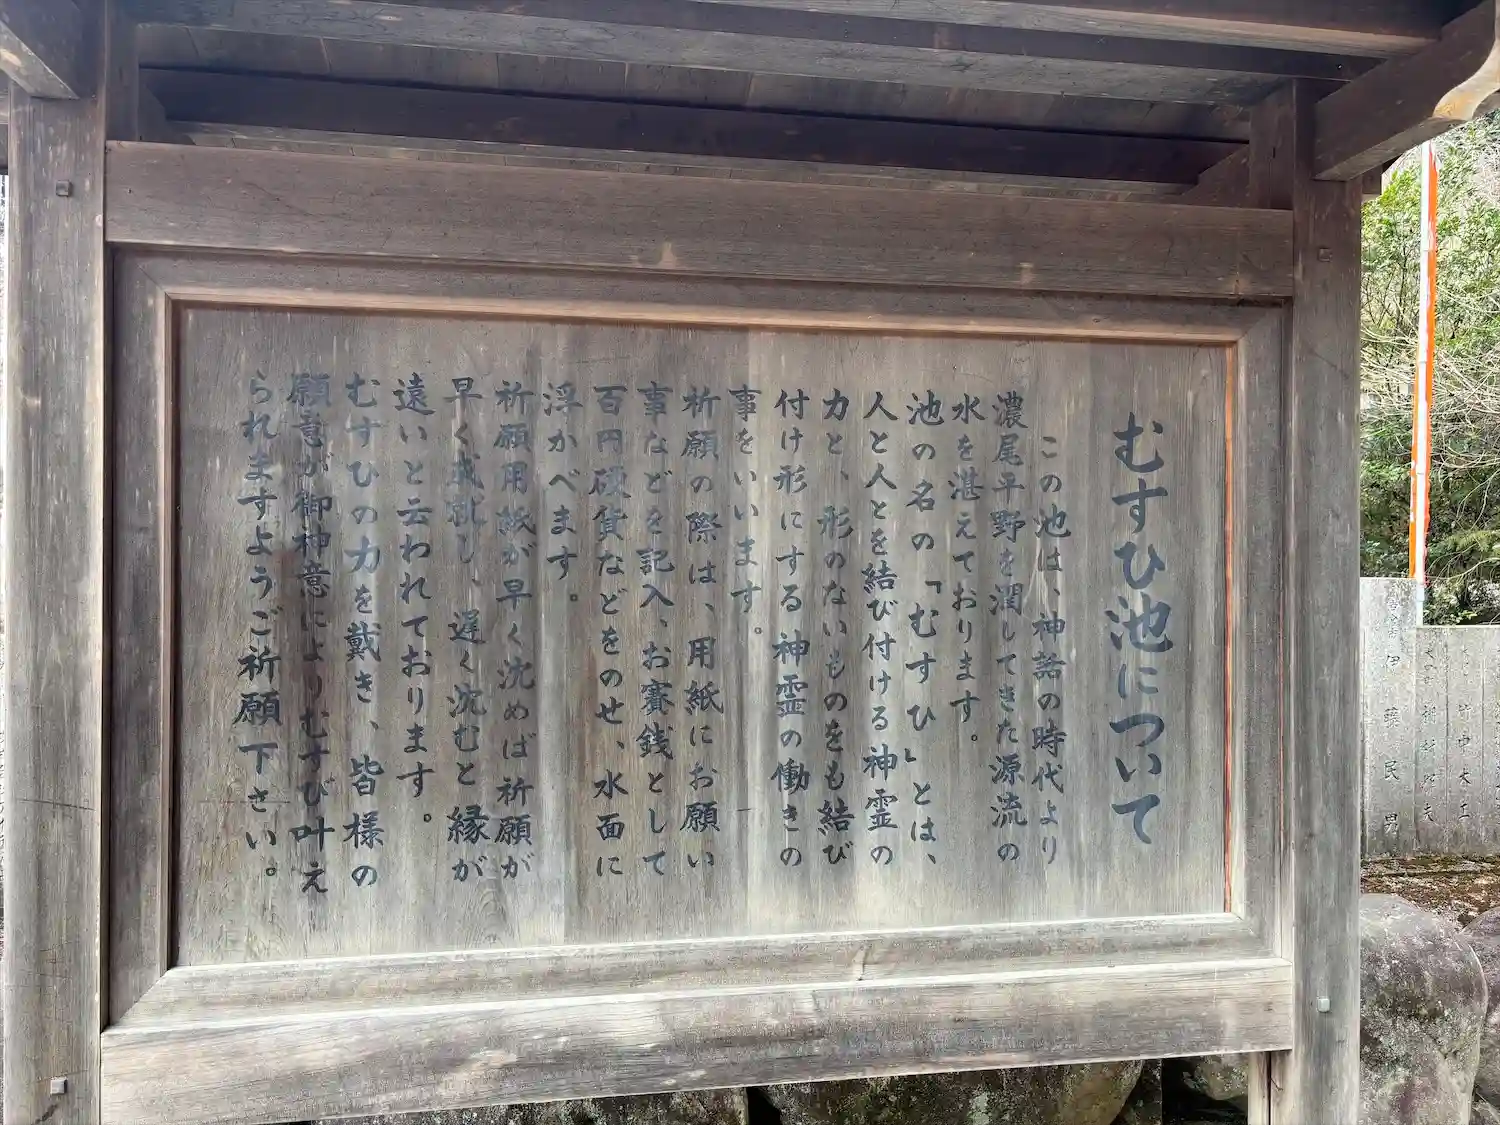 むすひ池について
この池は、神話の時代より
濃尾平野を潤してきた源流の
水を湛えております。
池の名の「むすひ」とは、
人と人とを結び付ける神霊の
力と、形のないものをも結び
付け形にする神霊の働きの
事をいいます。
祈願の際は、用紙にお願い
事などを記入、お賽銭として
百円硬貨などをのせ、水面に
浮かべます。
祈願用紙が早く沈めば祈願が
早く成就し、遅く沈むと縁が
遠いと云われております。
むすひの力を戴き、皆様の
願意が御神意によりむすび叶え
られますようご祈願下さい。
伊藤民男